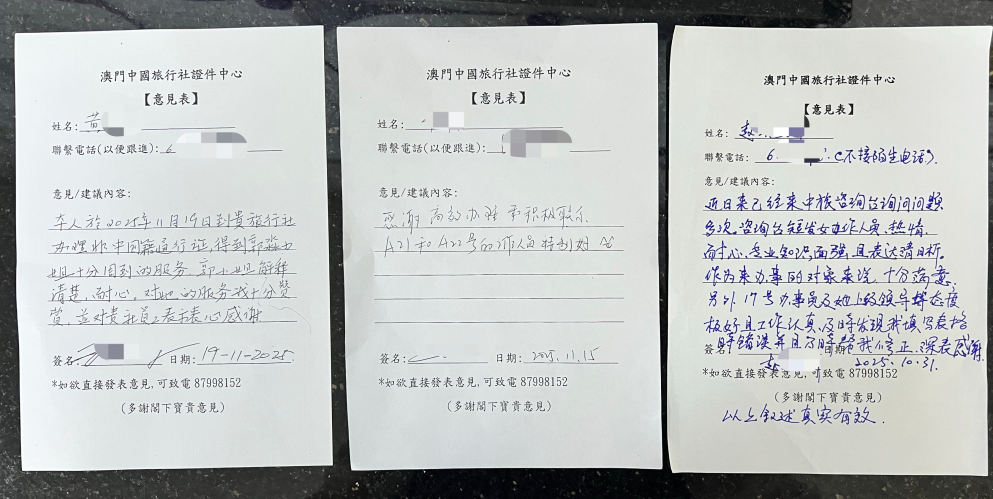 澳門中國旅行社證件中心
【意見表】
姓名: 黄
聯繫電話(以便跟進): 6
意見/建議內容:
本人於2025年11月19日到貴旅行社
办理非中国籍通行证,得到郭
姐十分周到的服务.郭小姐解释
清楚,耐心.对她的服务我十分赞
賞,並对貴社員工表示衷心感谢
簽名: 日期: 19-11-2025
*如欲直接發表意見,可致電 87998152
(多謝閣下寶貴意見)
澳門中國旅行社證件中心
【意見表】
姓名:
聯繫電話(以便跟進):
意見/建議內容:
感谢 高效办理 和积极联系
A21和A22号的工作人员 特别
簽名: 日期: 2025.11.15
*如欲直接發表意見,可致電 87998152
(多謝閣下寶貴意見)
澳門中國旅行社證件中心
【意見表】
姓名: 赵
聯繫電話: 6 (不接陌生电话).
意見/建議內容:
近日来已经来中旅咨询台询问问题
多次,咨询台短发女工作人员,热情.
耐心、专业知识面强,且表达清晰.
作为来办事的对象来说,十分满意,
另外17号办事员及她上级领导态度
极好且工作认真,及时发现我填写表格
时错误并且及時帮我们修正,深表感谢.
簽名: 赵 日期: 2025.10.31.
*如欲直接發表意見,可致電 87998152
(多謝閣下寶貴意見)
以上叙述真实有效.